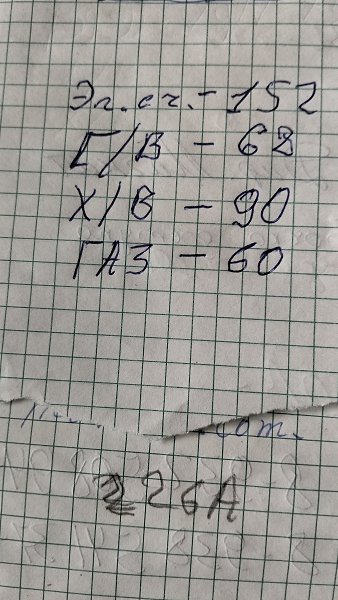 Эл.сч. - 152
Г/В - 68
Х/В - 90
ГАЗ - 60
226А